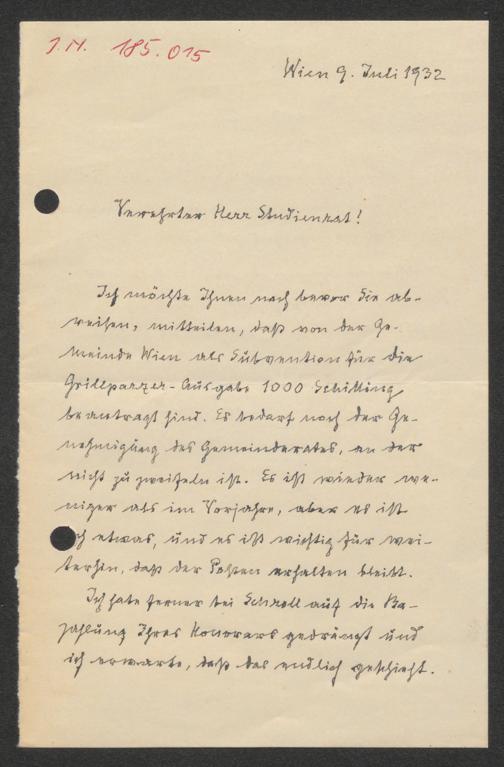 J.N. 185.015
Wien 9. Juli 1932
Verehrter Herr Studienrat!
Ich möchte Ihnen noch bevor Sie ab-
reisen, mitteilen, daß von der Ge-
meinde Wien als Subvention für die
Grillparzer-Ausgabe 1000 Schilling
beantragt sind. Es bedarf noch der Ge-
nehmigung des Gemeinderates, an der
nicht zu zweifeln ist. Es ist wieder we-
niger als im Vorjahre, aber es ist
etwas, und es ist wichtig für wei-
terhin, daß der Posten erhalten bleibt.
Ich habe ferner bei Schroll auf die Be-
zahlung Ihres Honorars gedrängt und
ich erwarte, daß das endlich geschieht.